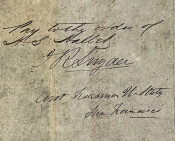 Pay to the order of
H. L. Hallet
R Snyder
Asst Treasurer U. States
San Francisco